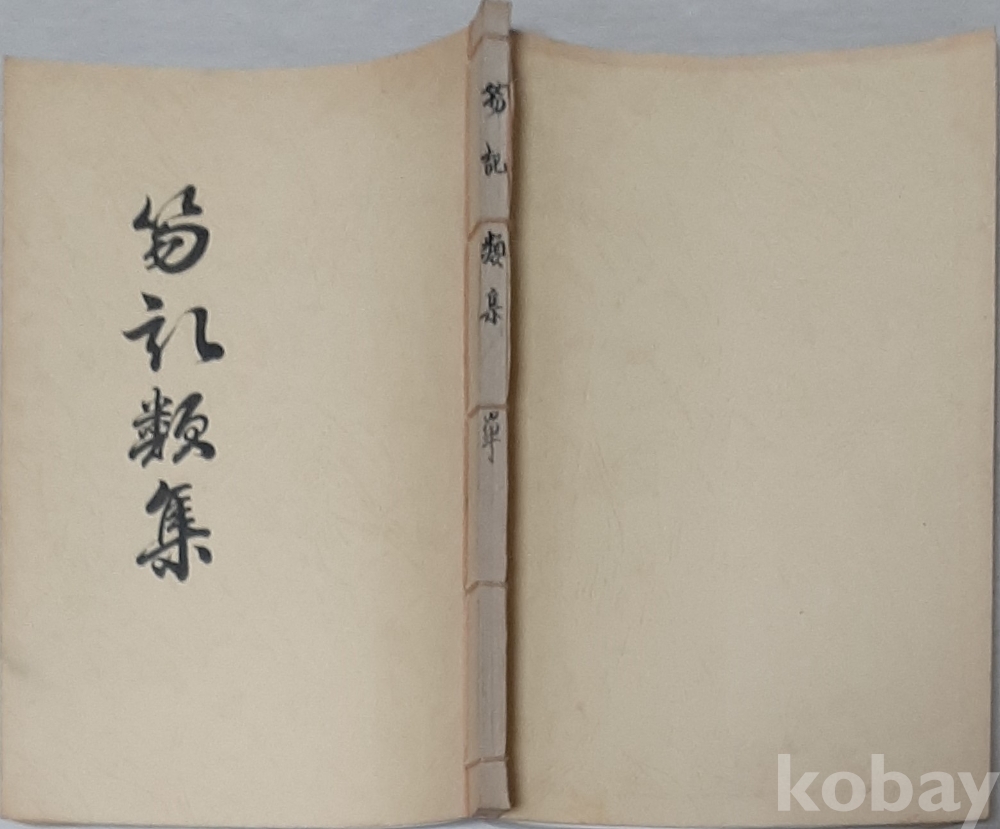 笏記類集
笏記類集 单
kobay